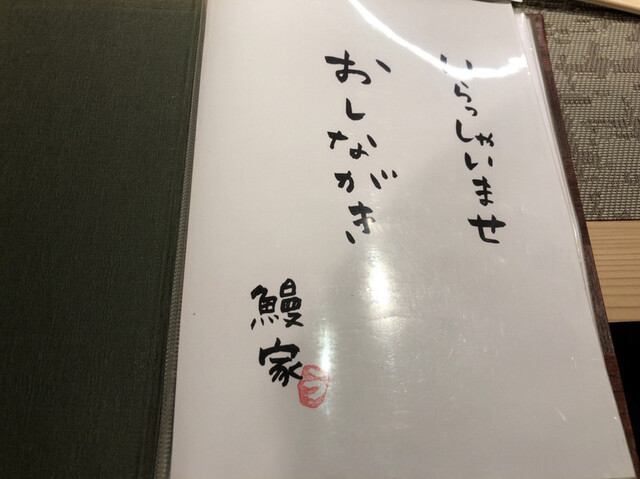 いらっしゃいませ
おしながき
鰻家
う